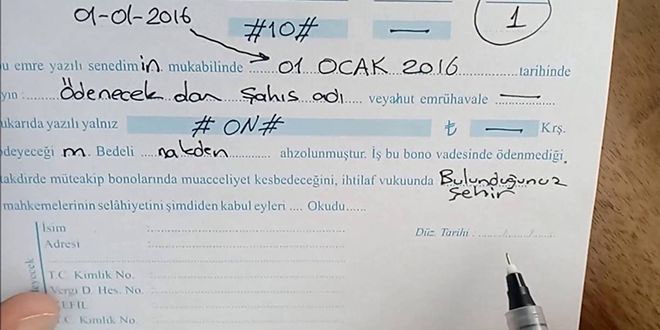 01-01-2016 #10# — 1
bu emre yazılı senedim in. mukabilinde ......01 OCAK 2016............tarihinde
yın : Ödenecek dan şahıs adı ..... veyahut emrühavale —
ukarıda yazılı yalnız # ON # ₺ — Krş.
deyeceği m. Bedeli ....nakden............ ahzolunmuştur. İş bu bono vadesinde ödenmediği,
takdirde müteakip bonolarında muacceliyet kesbedeceğini, ihtilaf vukuunda Bulunduğunuz
şehir
mahkemelerinin selâhiyetini şimdiden kabul eyleri .... Okudu......
İsim :
Adresi : Düz. Tarihi ......./....../......
T.C. Kimlik No. :
Vergi D. Hes. No. :
KEFİL
T.C. Kimlik No. :